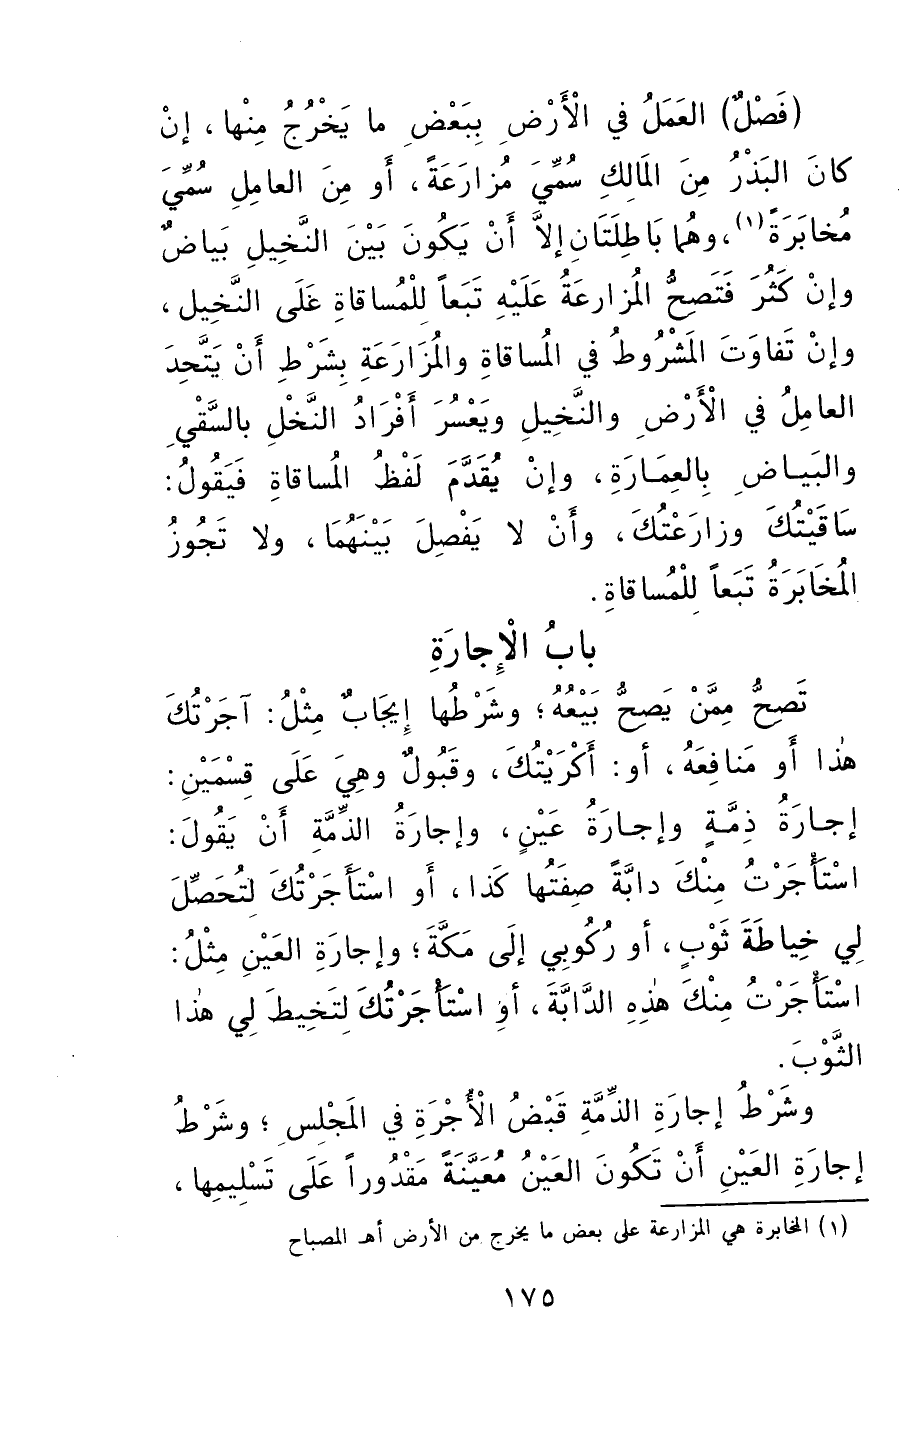 (فَصْلٌ) العَمَلُ في الْأَرْضِ بِبَعْضِ ما يَخْرُجُ مِنْها، إنْ
كانَ البَذْرُ مِنَ المَالِكِ سُمِّيَ مُزارَعَةً، أَو مِنَ العامِلِ سُمِّيَ
مُخابَرَةً(١)، وهُما بَاطِلَتَانِ إلاَّ أَنْ يَكُونَ بَيْنَ النَّخِيلِ بَياضٌ
وإنْ كَثُرَ فَتَصِحُّ المُزارعَةُ عَلَيْهِ تَبَعاً لِلْمُساقاةِ عَلَى النَّخِيلِ،
وإنْ تَفاوَتَ المَشْرُوطُ في المُساقاةِ والمُزَارَعَةِ بِشَرْطِ أَنْ يَتَّحِدَ
العامِلُ في الْأَرْضِ والنَّخِيلِ ويَعْسُرَ أَفْرَادُ النَّخْلِ بالسَّقْيِ
والبَيـاضِ بِالعِمَـارَةِ، وإنْ يُقَدَّمَ لَفْظُ المُساقاةِ فَيَقُولُ:
سَاقَيْتُكَ وزارَعْتُكَ، وأَنْ لا يَفْصِلَ بَيْنَهُمَا، ولا تَجُوزُ
المُخَابَرَةُ تَبَعاً لِلْمُساقاةِ.
بابُ الْإِجارَةِ
تَصِحُّ مِمَّنْ يَصِحُّ بَيْعُهُ؛ وشَرْطُها إِيجَابٌ مِثْلُ: آجَرْتُكَ
هٰذا أَو مَنافِعَهُ، أو: أَكْرَيْتُكَ، وقَبُولٌ وهِيَ عَلَى قِسْمَيْنِ:
إجـارَةُ ذِمَّـةٍ وإجـارَةُ عَيْنٍ، وإجارَةُ الذِّمَّةِ أَنْ يَقُولَ:
اسْتَأْجَرْتُ مِنْكَ دابَّةً صِفَتُها كَذا، أَو اسْتَأَجَرْتُكَ لِتُحَصِّلَ
لِي خِياطَةَ ثَوْبٍ، أو رُكُوبي إلَى مَكَّةَ؛ وإجارَةِ العَيْنِ مِثْلُ:
اسْتَأْجَرْتُ مِنْكَ هٰذِهِ الدَّابَّةَ، أو اسْتَأْجَرْتُكَ لِتَخِيطَ لِي هٰذا
الثَّوْبَ.
وشَرْطُ إجارَةِ الذِّمَّةِ قَبْضُ الْأُجْرَةِ في المَجْلِسِ؛ وشَرْطُ
إجارَةِ العَيْنِ أَنْ تَكُونَ العَيْنُ مُعَيَّنَةً مَقْدُوراً عَلَى تَسْلِيمِها،
(١) المخابرة هي المزارعة على بعض ما يخرج من الأرض أهـ المصباح
١٧٥